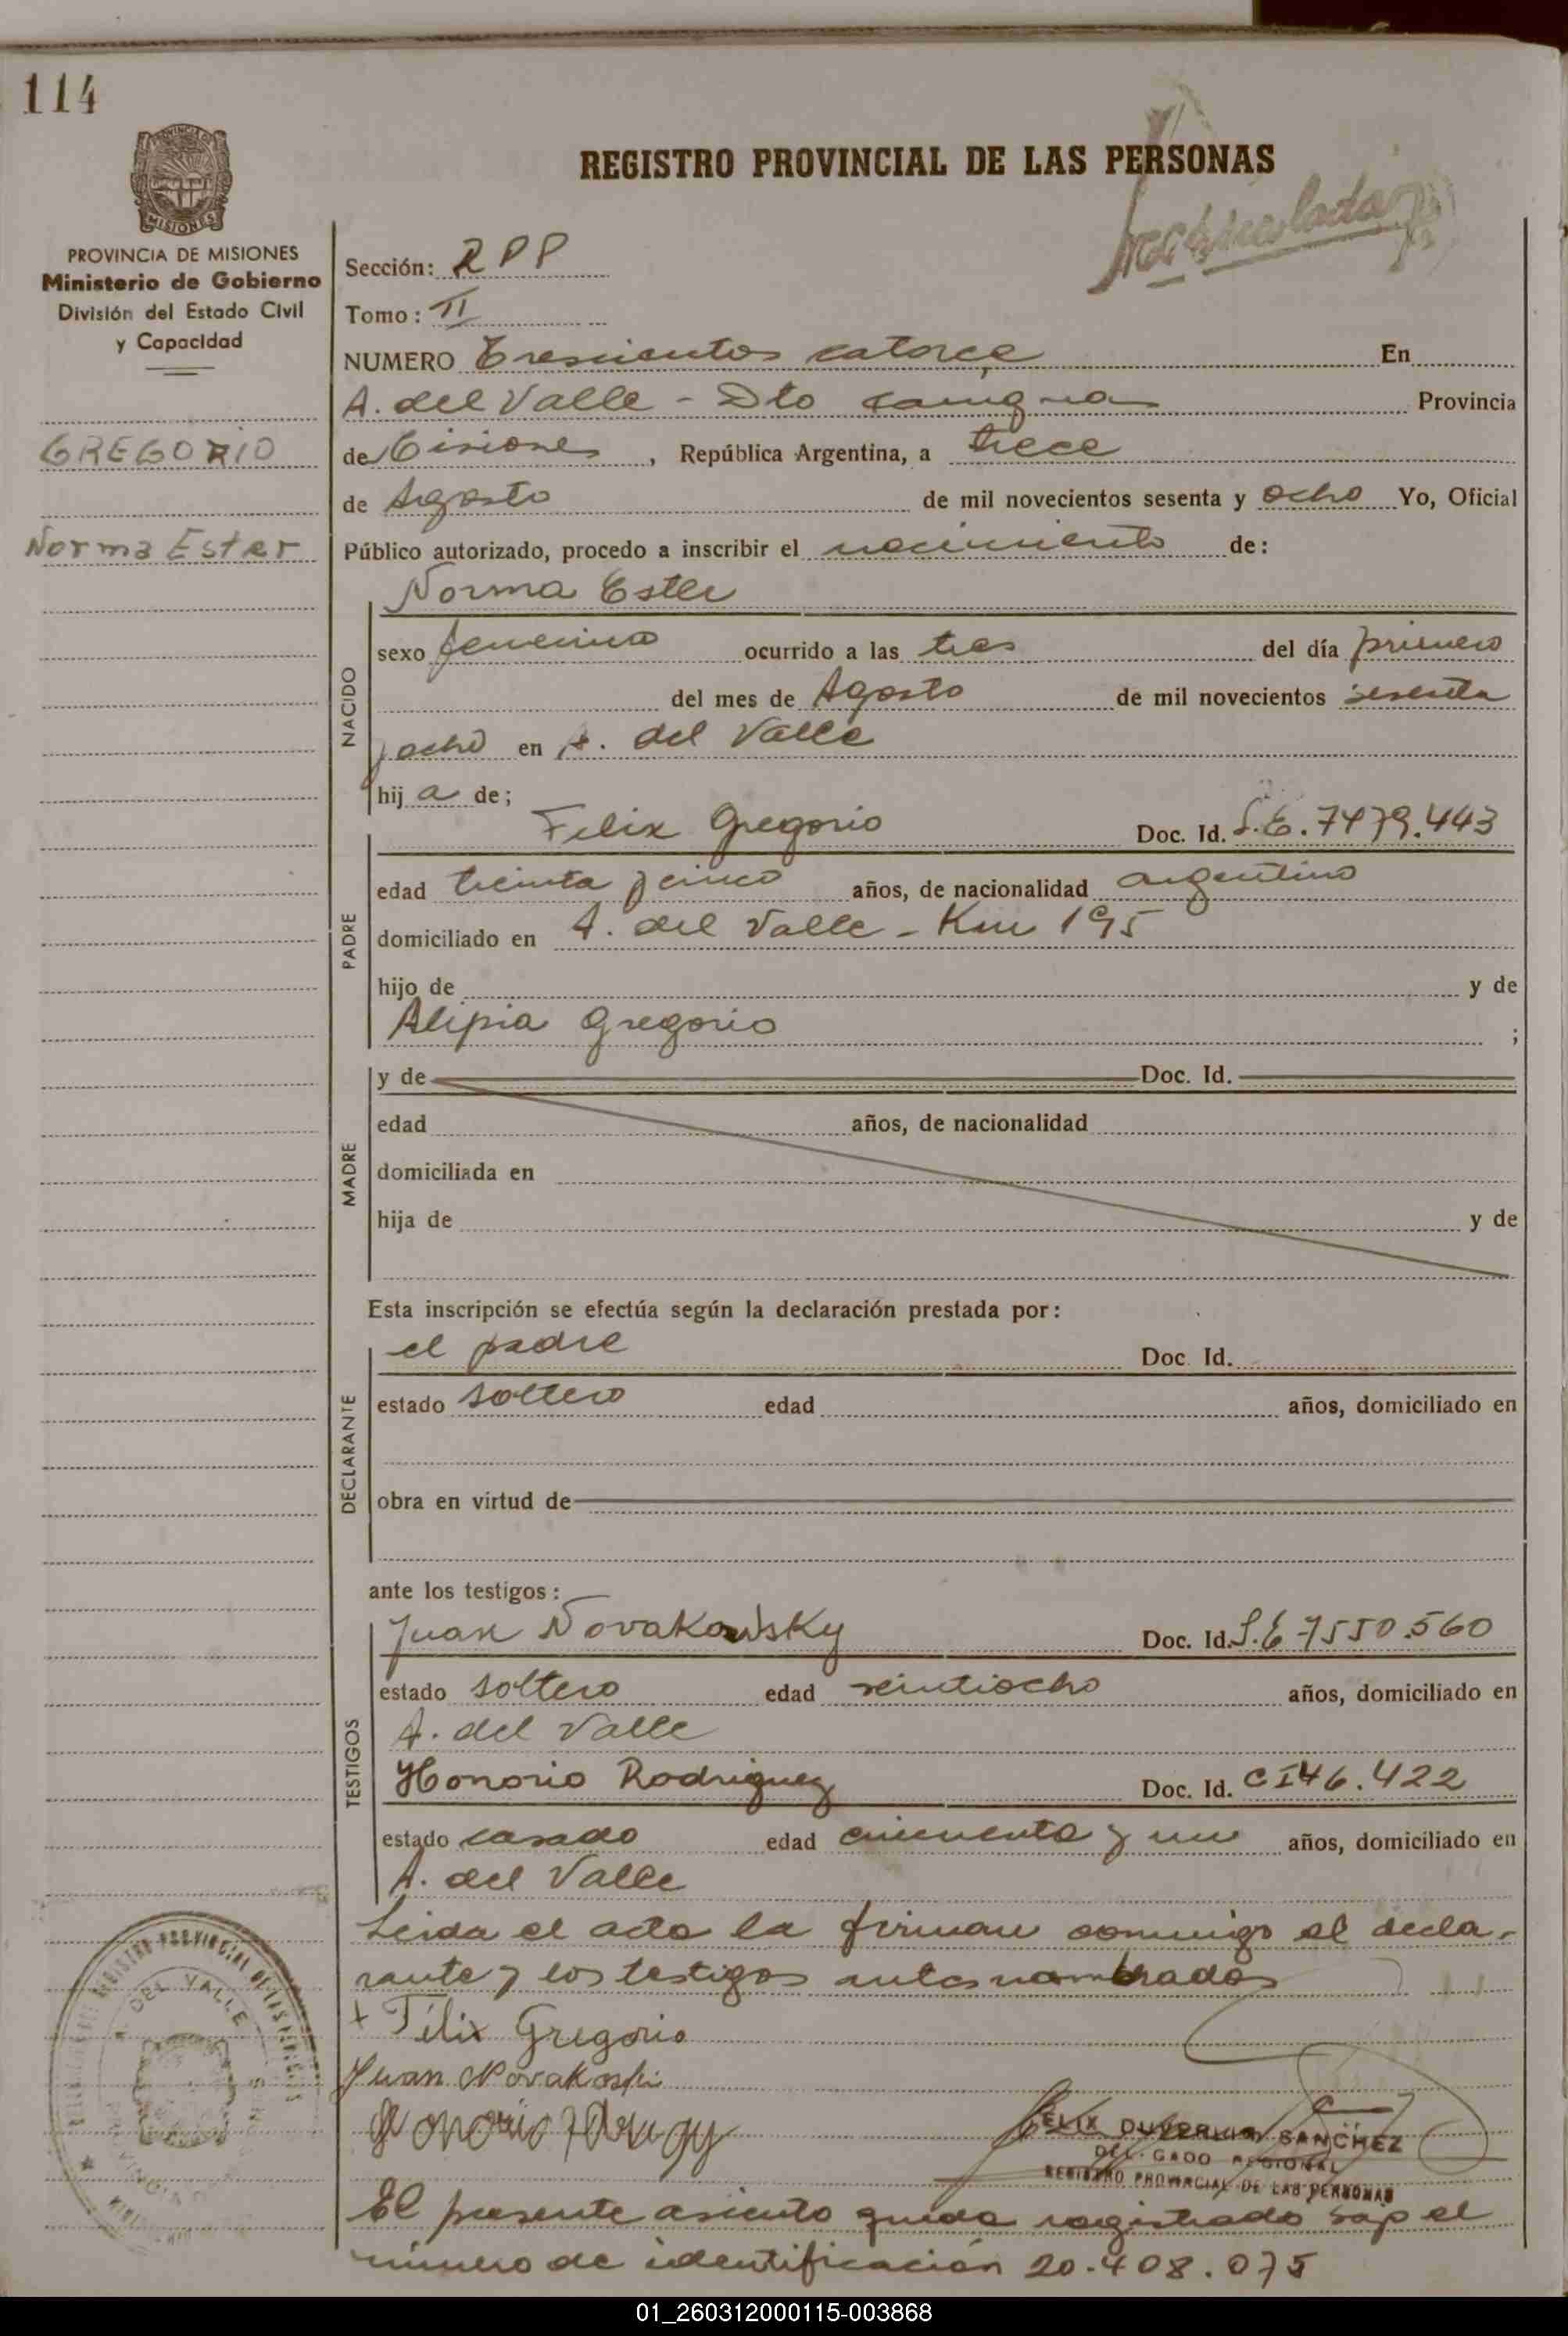 114
PROVINCIA DE MISIONES
Ministerio de Gobierno
División del Estado Civil
y Capacidad
GREGORIO
Norma Ester
REGISTRO PROVINCIAL DE LAS PERSONAS
Sección: RPP
Tomo: II
NUMERO Trescientos catorce En
A. del Valle - Dto Cainguas Provincia
de Misiones, República Argentina, a trece
de Agosto de mil novecientos sesenta y ocho Yo, Oficial
Público autorizado, procedo a inscribir el nacimiento de:
Norma Ester
NACIDO
sexo femenino ocurrido a las tres del día primero
del mes de Agosto de mil novecientos sesenta
y ocho en A. del Valle
hij a de;
Felix Gregorio Doc. Id. L.E. 7479.443
PADRE
edad treinta y cinco años, de nacionalidad argentino
domiciliado en A. del Valle - Km 195
hijo de y de
Alipia Gregorio ;
MADRE
y de Doc. Id.
edad años, de nacionalidad
domiciliada en
hija de y de
Esta inscripción se efectúa según la declaración prestada por:
el padre Doc. Id.
DECLARANTE
estado soltero edad años, domiciliado en
obra en virtud de
ante los testigos:
Juan Novakowsky Doc. Id. L.E 7550.560
TESTIGOS
estado soltero edad veintiocho años, domiciliado en
A. del Valle
Honorio Rodriguez Doc. Id. CI46.422
estado casado edad cincuenta y un años, domiciliado en
A. del Valle
Leida el acta la firman conmigo el decla-
rante y los testigos antes nombrados
+ Félix Gregorio
Juan Novakoski
FELIX DUVERLIM SANCHEZ
DELEGADO REGIONAL
REGISTRO PROVINCIAL DE LAS PERSONAS
El presente asiento queda registrado bajo el
número de identificación 20.408.075
01_260312000115-003868